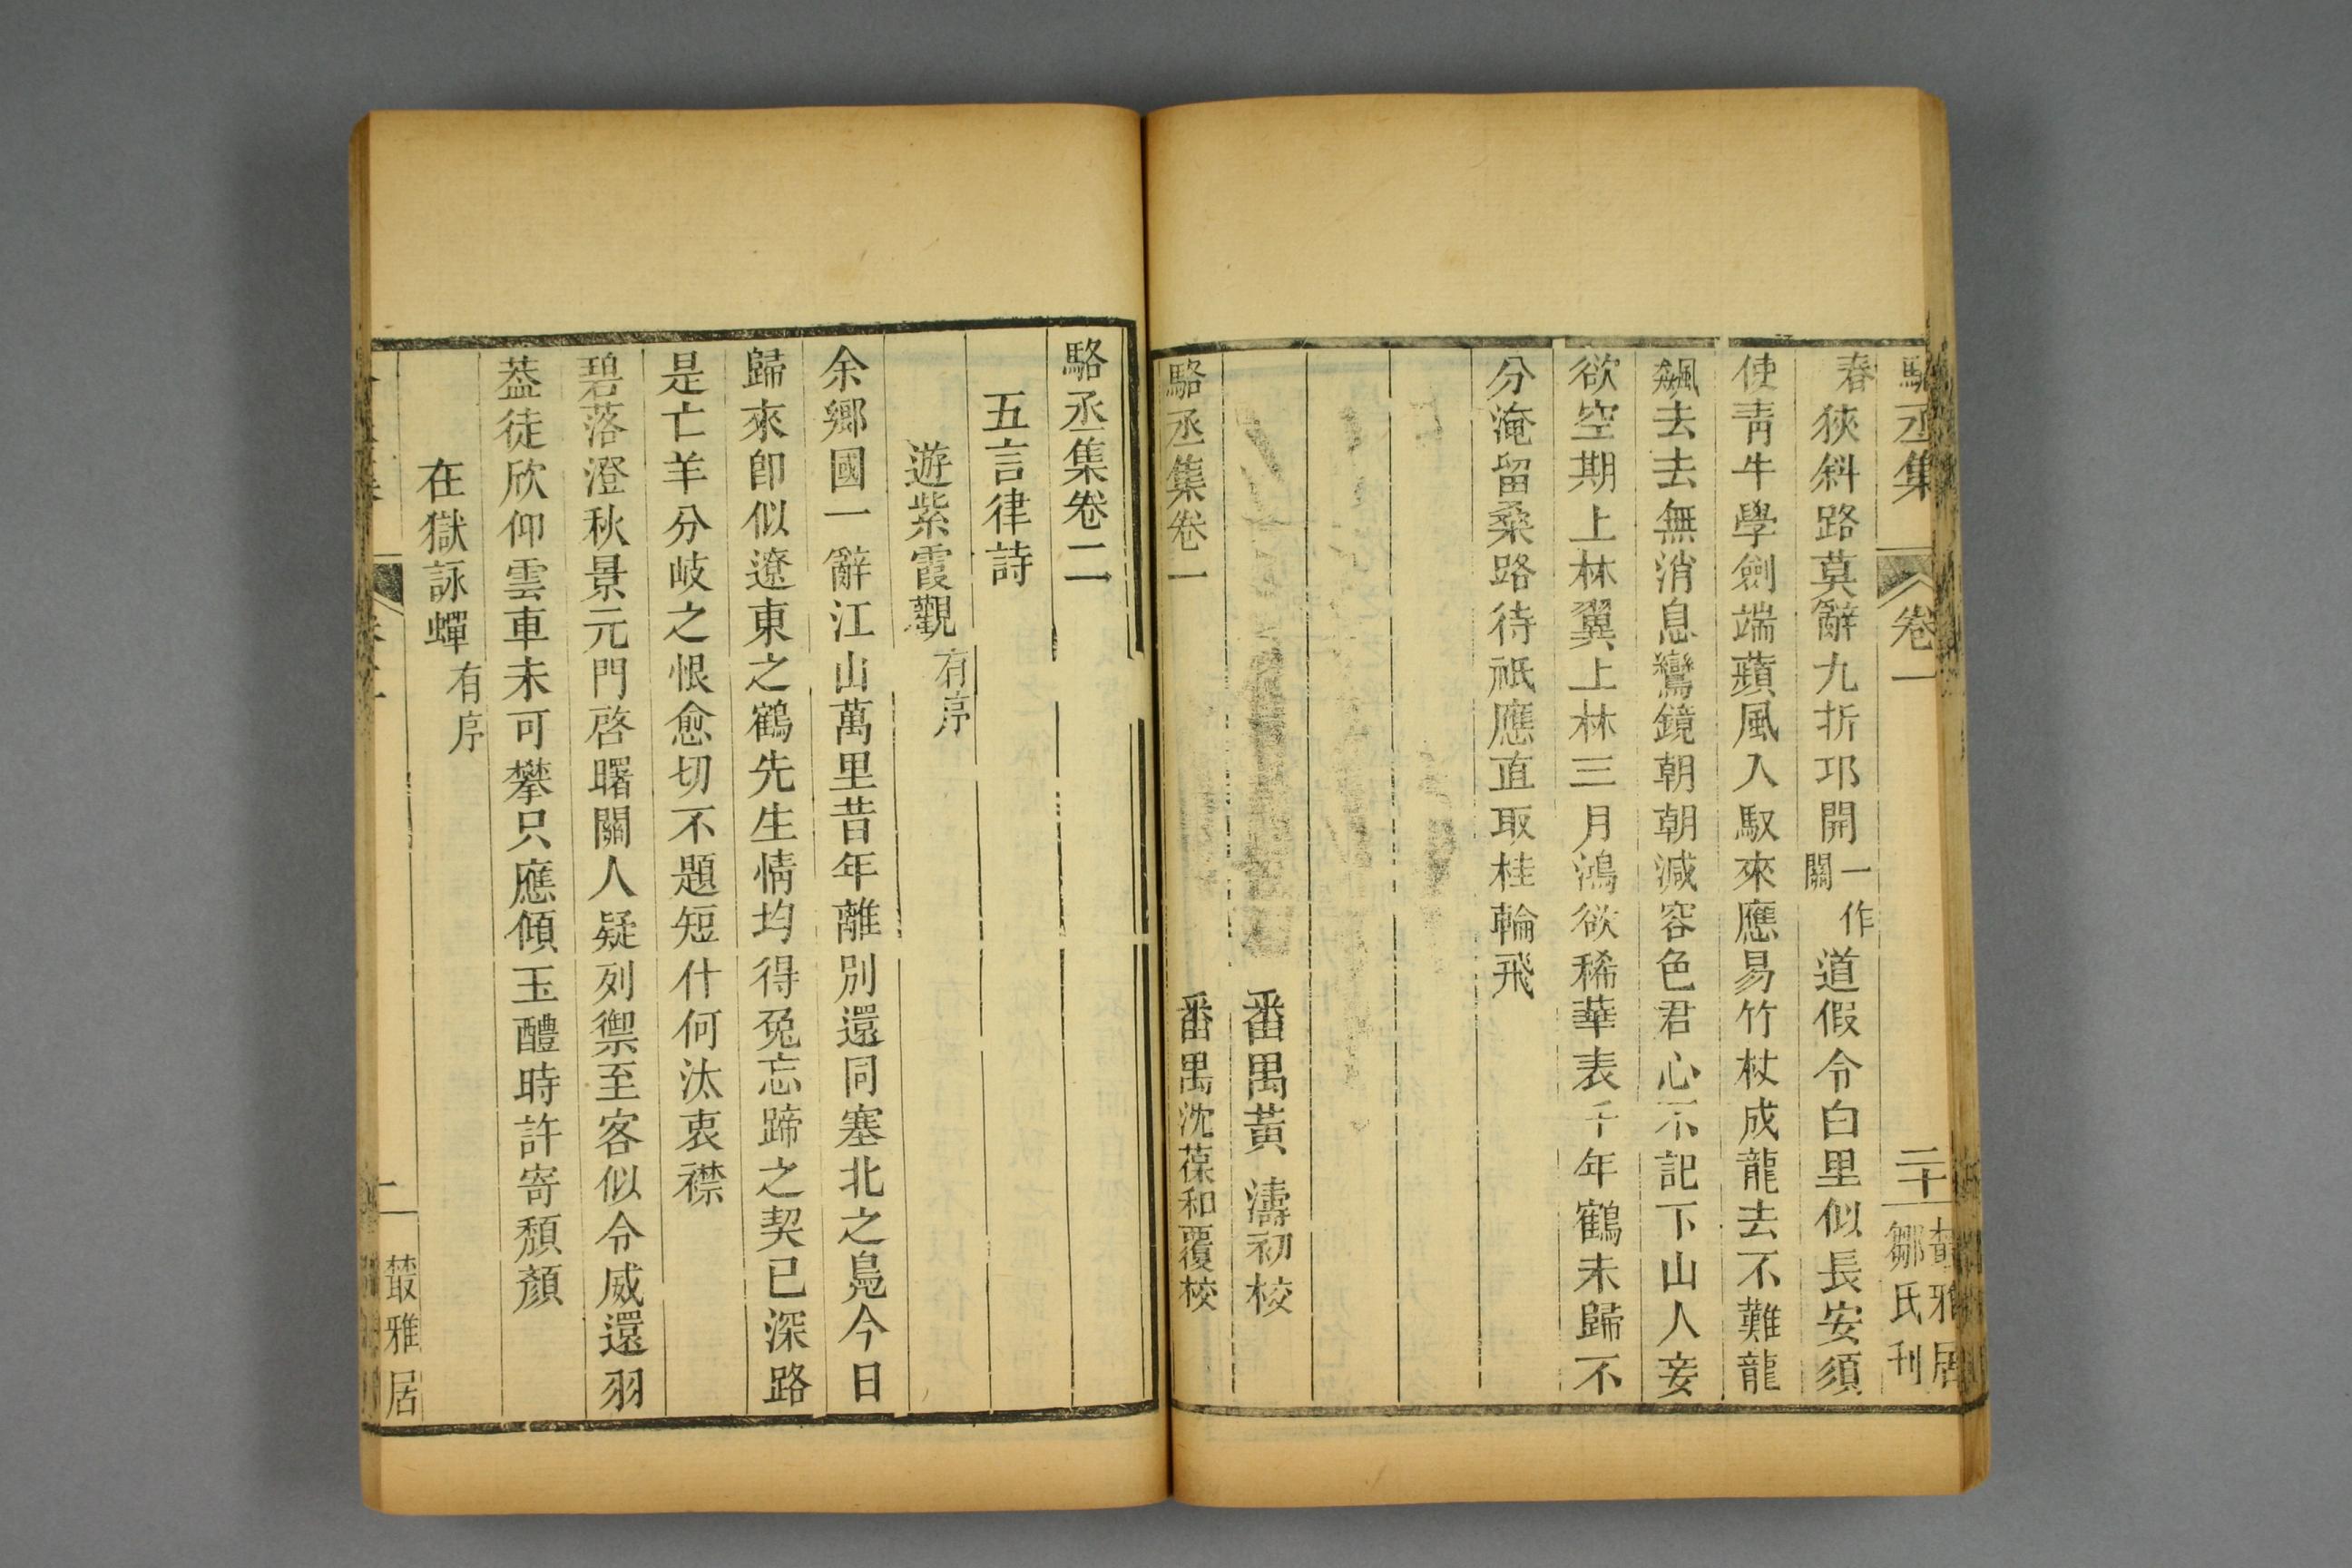 駱丞集
卷一
二十
叢雅居
鄒氏刊
春狹斜路莫辭九折邛開一作關道假令白里似長安須
使青牛學劍端蘋風入馭來應易竹杖成龍去不難龍
飆去去無消息鸞鏡朝朝減容色君心不記下山人妾
欲空期上林翼上林三月鴻欲稀華表千年鶴未歸不
分淹留桑路待祇應直取桂輪飛
番禺黃濤初校
駱丞集卷一
番禺沈葆和覆校
駱丞集卷二
五言律詩
遊紫霞觀有序
余鄉國一辭江山萬里昔年離別還同塞北之鳧今日
歸來卽似遼東之鶴先生情均得兔忘蹄之契已深路
是亡羊分岐之恨愈切不題短什何汰衷襟
碧落澄秋景元門啓曙關人疑列禦至客似令威還羽
葢徒欣仰雲車未可攀只應傾玉醴時許寄頹顏
在獄詠蟬有序
一
叢雅居